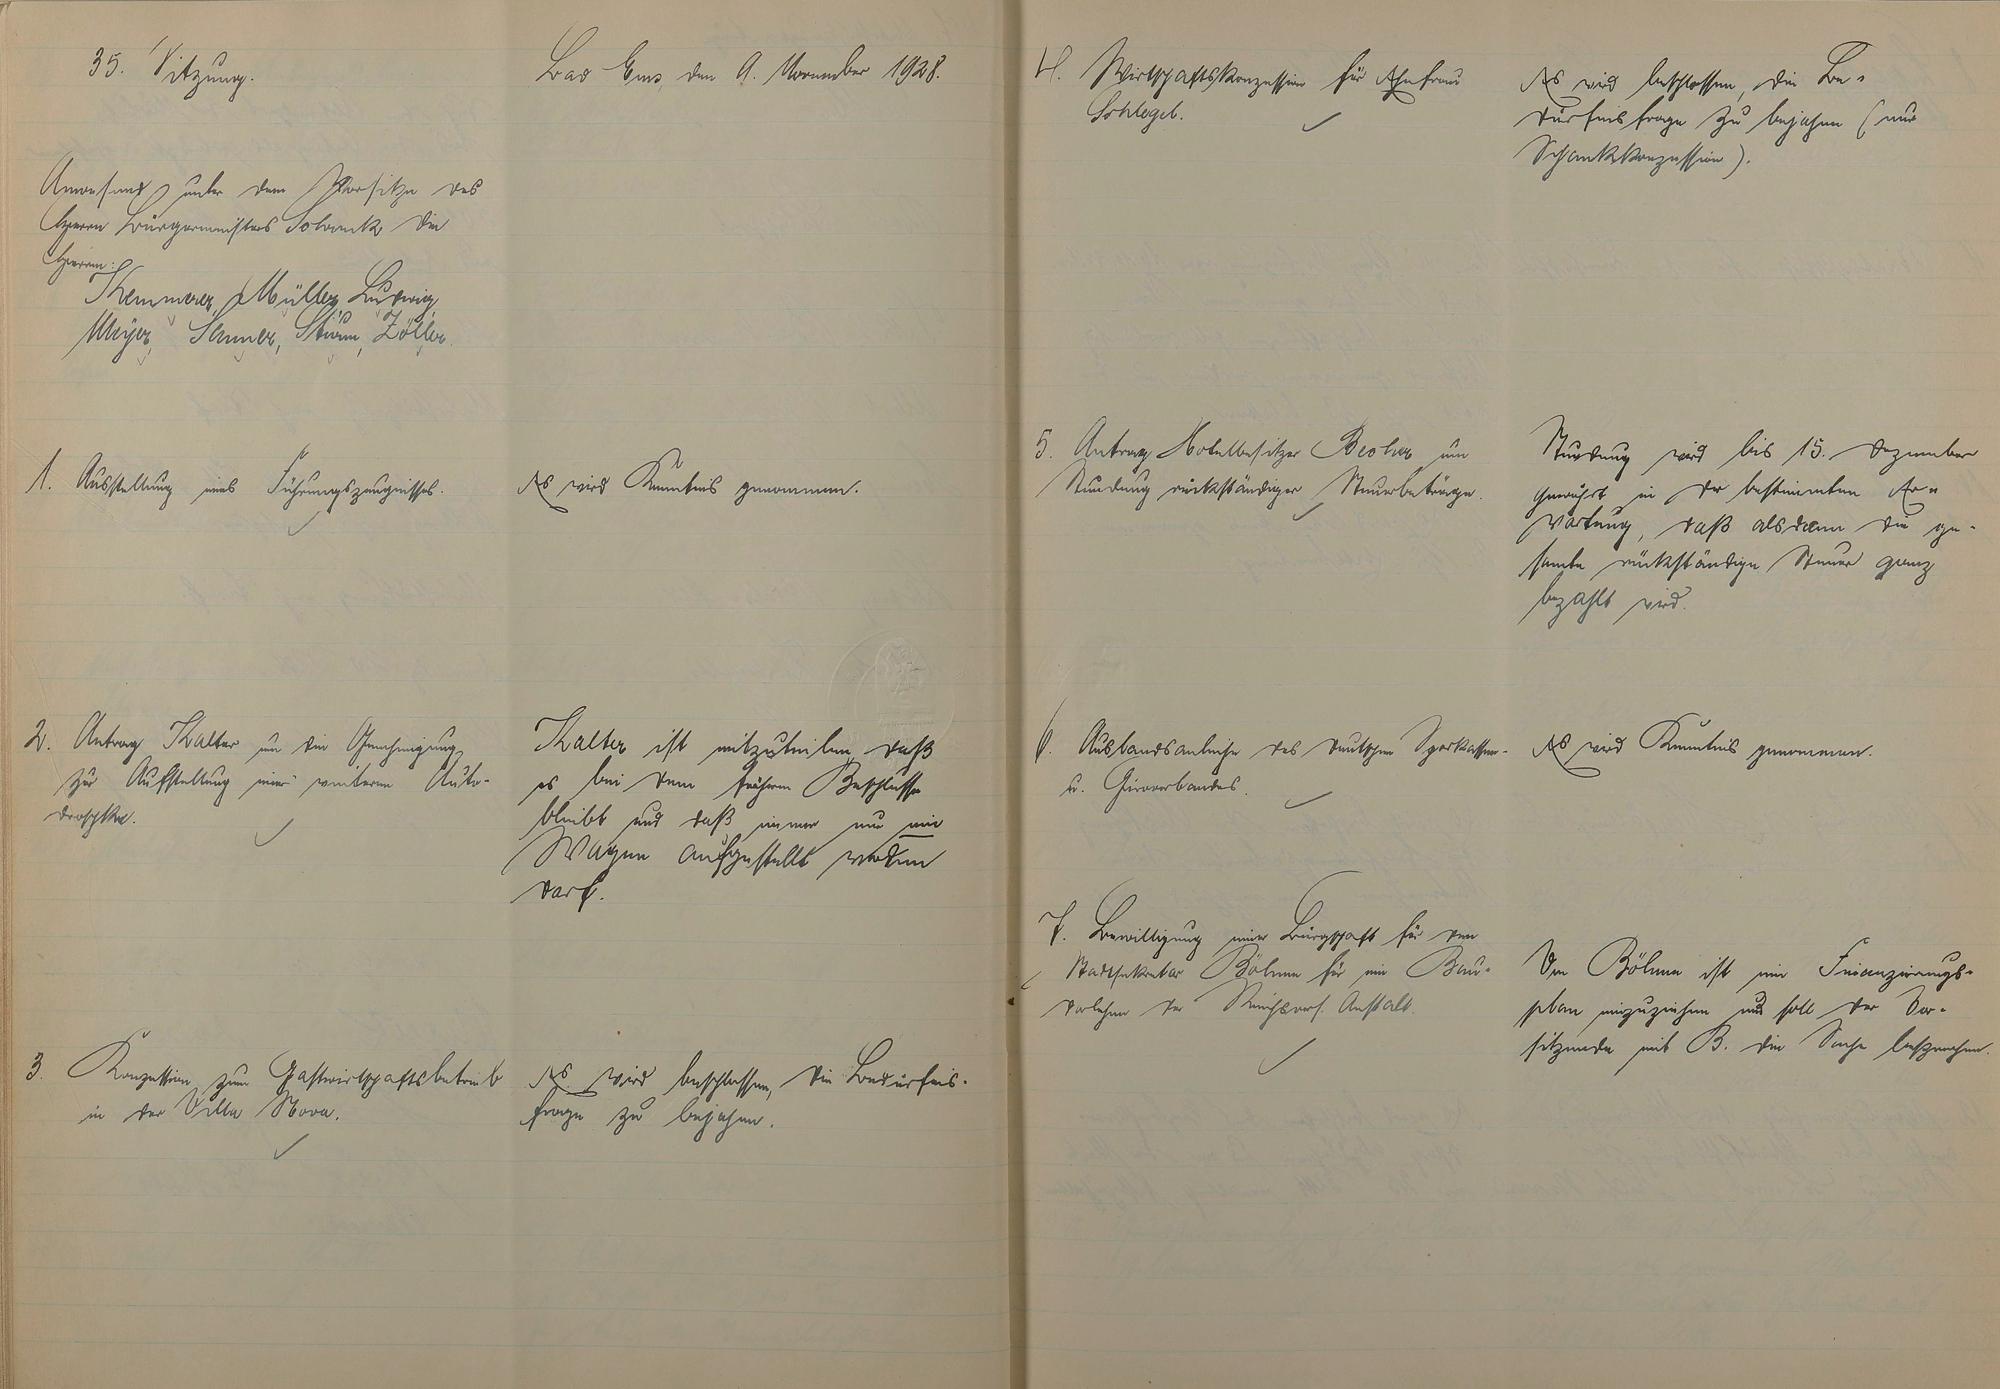 35. Sitzung.
Bad Ems, den 9. November 1928.
Anwesend unter dem Vorsitze des
Herrn Bürgermeisters Schranck die
Herren:
Kemmerer, Müller, Ludwig,
Meyer, Sturm, Zöller.
1. Ausstellung eines Führungszeugnisses.
Es wird Kenntnis genommen.
2. Antrag Kalter um die Genehmigung
zur Aufstellung einer weiteren Auto-
droschke.
Kalter ist mitzuteilen, daß
es bei dem früheren Beschlusse
bleibt und daß immer nur ein
Wagen aufgestellt werden
darf.
3. Konzession zum Gastwirtschaftsbetrieb
in der Villa Nova.
Es wird beschlossen, die Bedürfnis-
frage zu bejahen.
4. Wirtschaftskonzession für Ehefrau
Schlegel.
Es wird beschlossen, die Be-
dürfnisfrage zu bejahen (nur
Schankkonzession).
5. Antrag Hotelbesitzer um
Stundung rückständiger Steuerbeträge.
Stundung wird bis 15. Dezember
gewährt in der bestimmten Er-
wartung, daß alsdann die ge-
samte rückständige Steuer ganz
bezahlt wird.
6. Auslandsanleihe des Deutschen Sparkassen-
u. Giroverbandes.
Es wird Kenntnis genommen.
7. Bewilligung einer Bürgschaft für den
Stadtsekretär Böhmer für ein Bau-
darlehen der Reichsvers. Anstalt.
Von Böhmer ist ein Finanzierungs-
plan einzuziehen und soll der Vor-
sitzende mit B. die Sache besprechen.